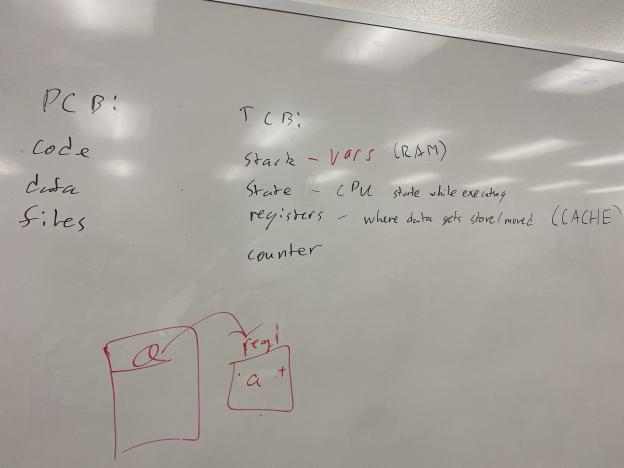 PCB:
code
data
files
TCB:
stack - vars (RAM)
state - CPU state while executing
registers - where data gets store/moved (CACHE)
counter
a
reg1
a +